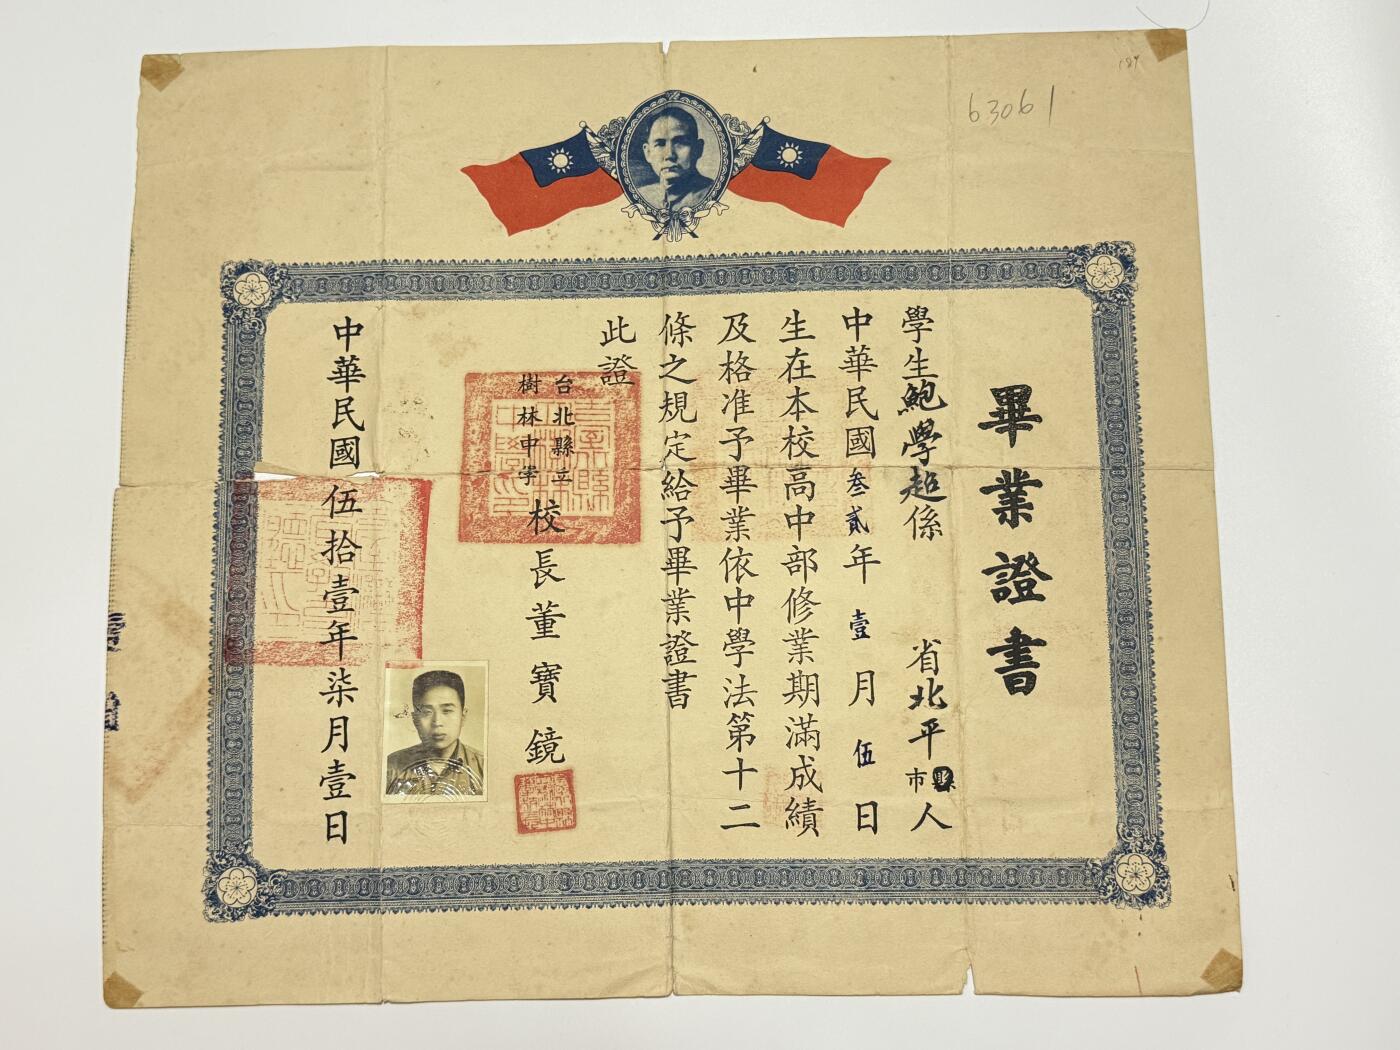 63061
畢業證書
學生鮑學超係　省北平市縣人
中華民國叁貳年壹月伍日
生在本校高中部修業期滿成績
及格准予畢業依中學法第十二
條之規定給予畢業證書
此證
台北縣立
樹林中学
校長董寶鏡
中華民國伍拾壹年柒月壹日